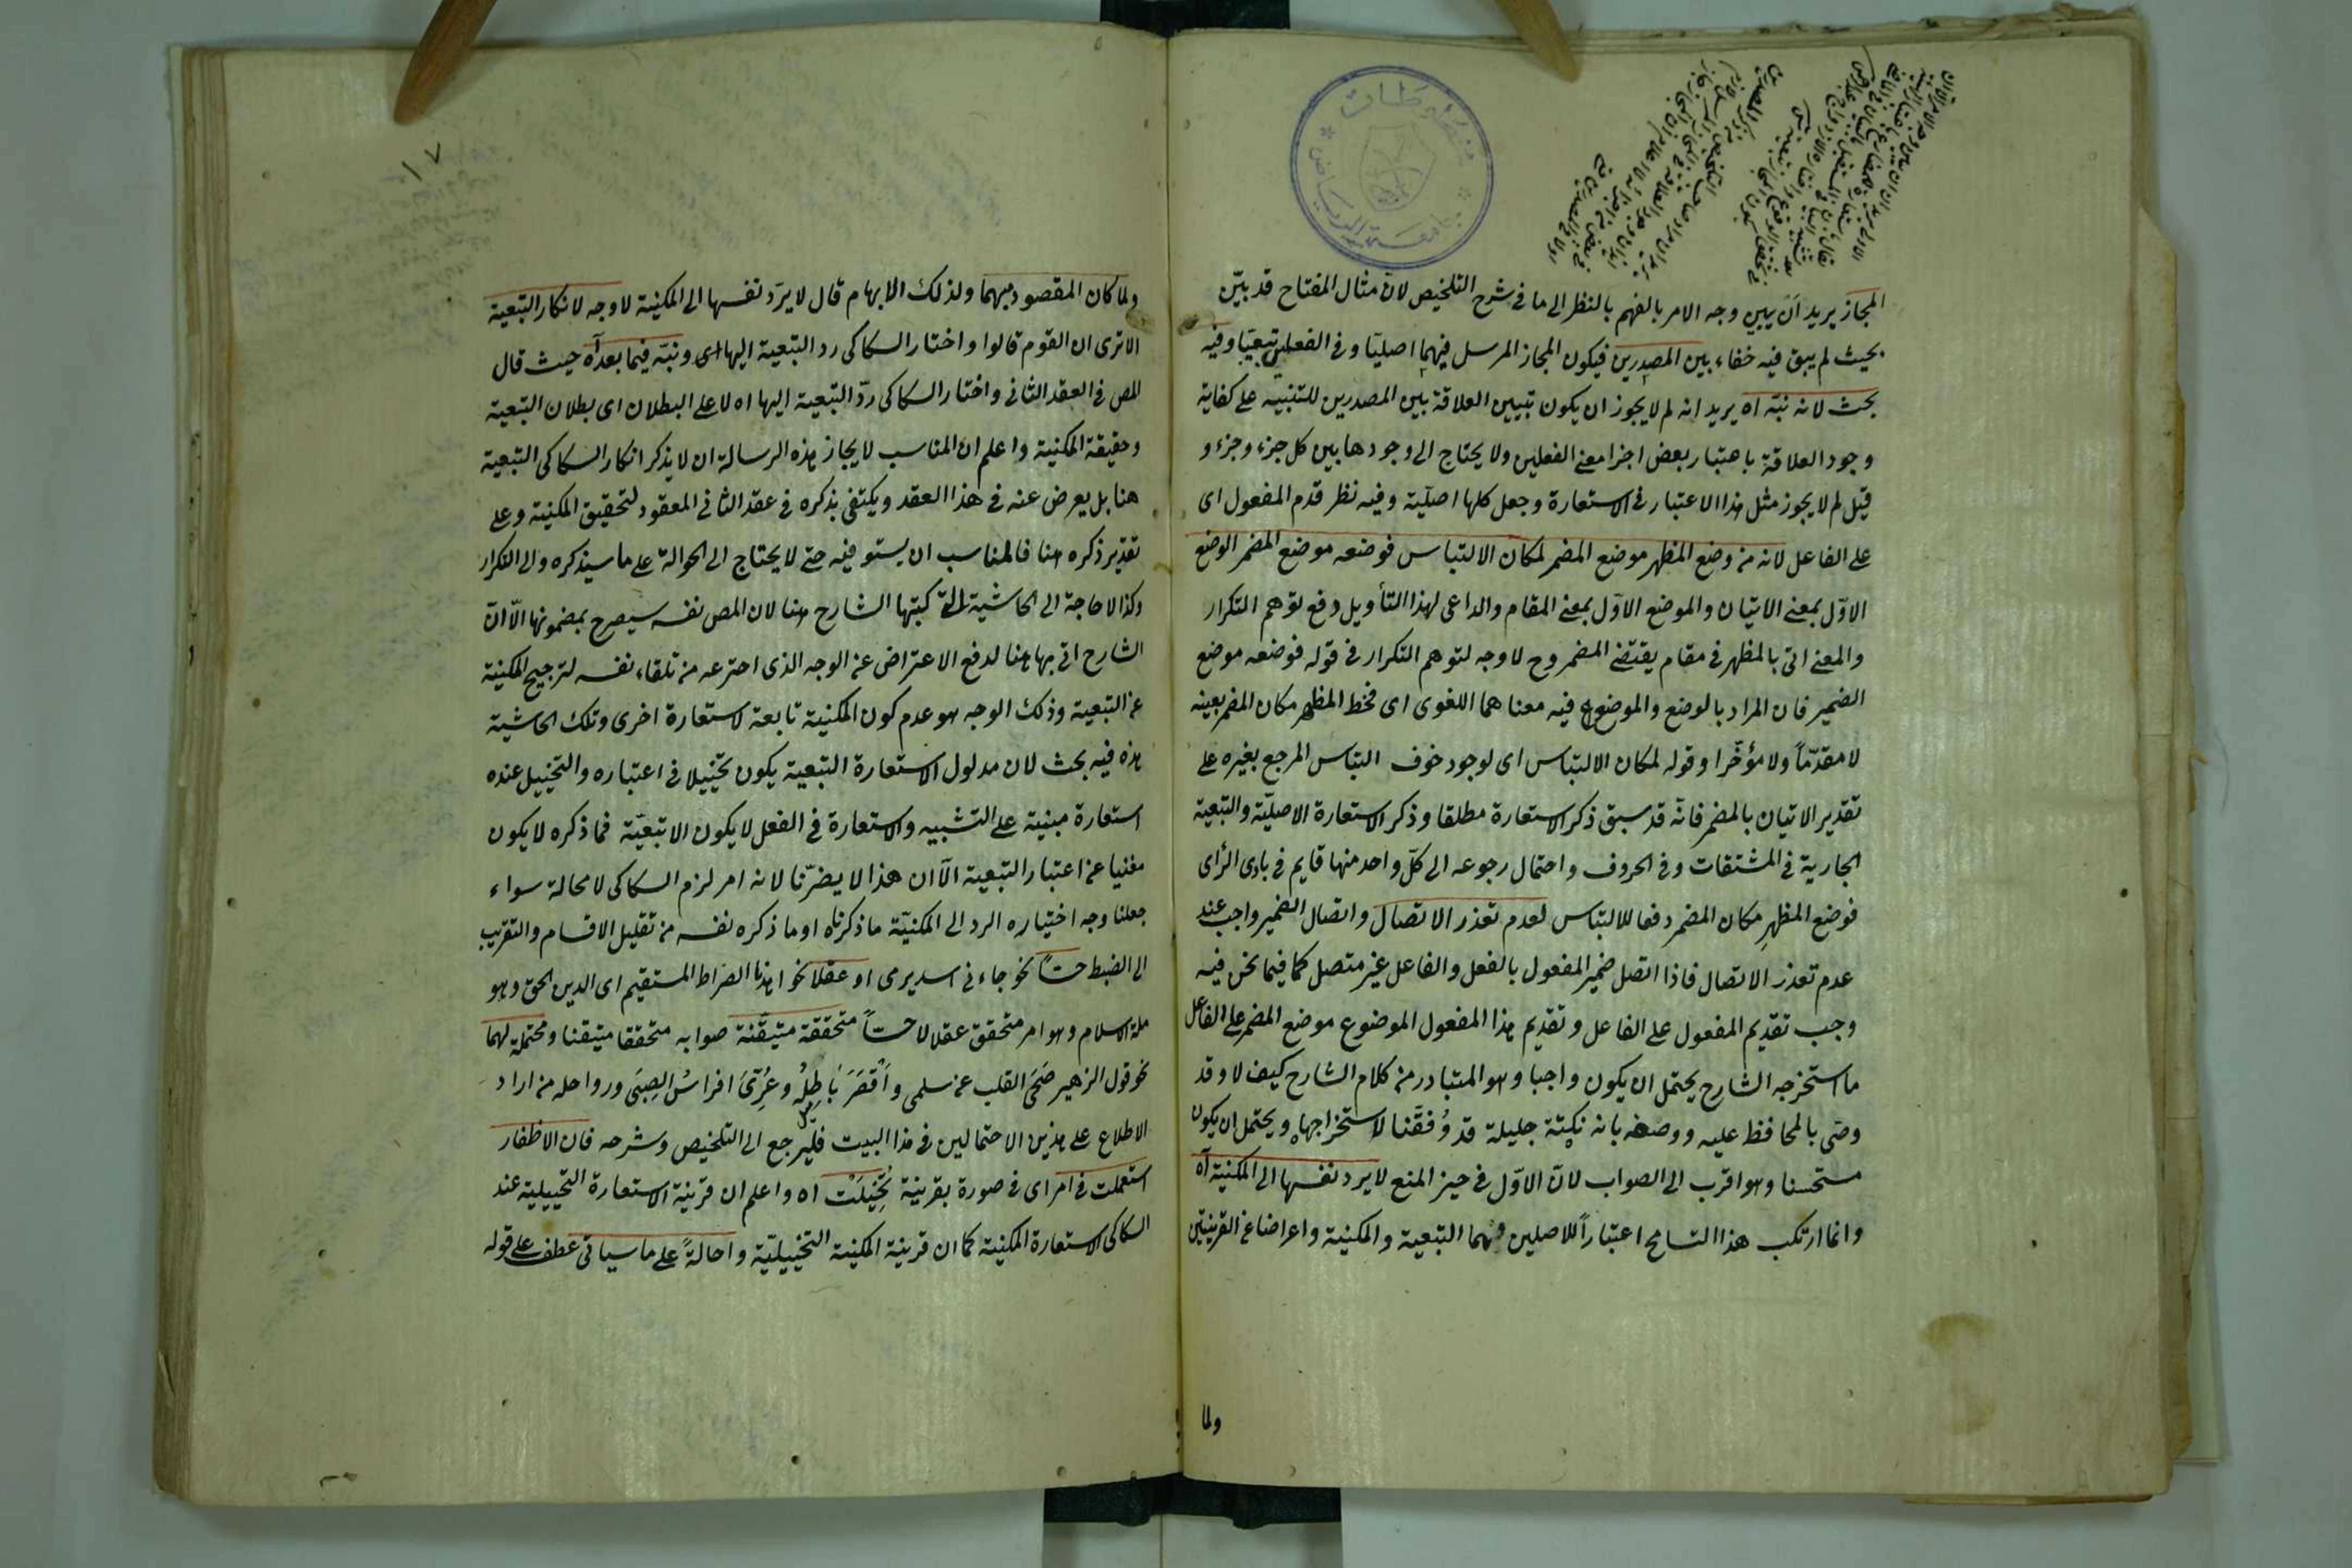 المجاز يريد ان يبين وجه الامر بالفهم بالنظر الى ما في شرح التلخيص لان مثال المفتاح قد بيّن
بحيث لم يبق فيه خفاء بين المصدرين فيكون المجاز المرسل فيهما اصليّا وفى الفعلين تبعيّا وفيه
بحث لانه نبّه اه يريد انه لم لا يجوز ان يكون تبيين العلاقة بين المصدرين للتنبيه على كفاية
وجود العلاقة باعتبار بعض اجزا معنى الفعلين ولا يحتاج الى وجودها بين كل جزء وجزء و
قيل لم لا يجوز مثل هذا الاعتبار فى الاستعارة وجعل كلها اصليّة وفيه نظر قدم المفعول اى
على الفاعل لانه من وضع المظهر موضع المضمر لمكان الالتباس فوضعه موضع المضمر الوضع
الاوّل بمعنى الاتيان والموضع الاوّل بمعنى المقام والداعى لهذا التأويل دفع توهم التكرار
والمعنى اتى بالمظهر فى مقام يقتضى المضمر وح لا وجه لتوهم التكرار فى قوله فوضعه موضع
الضمير فان المراد بالوضع والموضوع فيه معناهما اللغوى اى فحط المظهر مكان المضمر بعينه
لا مقدّماً ولا مؤخّرا وقوله لمكان الالتباس اى لوجود خوف التباس المرجع بغيره على
تقدير الاتيان بالمضمر فانّه قد سبق ذكر الاستعارة مطلقا وذكر الاستعارة الاصليّة والتبعية
الجارية فى المشتقات وفى الحروف واحتمال رجوعه الى كلّ واحد منها قايم فى بادى الرأى
فوضع المظهر مكان المضمر دفعا للالتباس لعدم تعذر الاتصال واتصال الضمير واجب عند
عدم تعذر الاتصال فاذا اتصل ضمير المفعول بالفعل والفاعل غير متصل كما فيما نحن فيه
وجب تقديم المفعول على الفاعل وتقديم هذا المفعول الموضوع موضع المضمر على الفاعل
ما استخرجه الشارح يحتمل ان يكون واجبا وهو المتبادر من كلام الشارح كيف لا وقد
وصّى بالمحافظ عليه ووصفه بانه نكتة جليلة قد وُفقّنا لاستخراجها ويحتمل ان يكون
مستحسنا وهو اقرب الى الصواب لانّ الاوّل فى حيز المنع لا يرد نفسها الى المكنية آه
وانما ارتكب هذا التسامح اعتباراً للاصلين وهما التبعية والمكنية واعراضا عن القرينتين
ولما
ولما كان المقصود مبهما ولذلك الابهام قال لا يرّد نفسها الى المكنية لا وجه لانكار التبعية
الا ترى ان القوم قالوا واختار السكاكى رد التبعية اليها اى ونبّه فيما بعد آه حيث قال
المص فى العقد الثانى واختار السكاكى ردّ التبعية اليها اه لا على البطلان اى بطلان التبعية
وحقيقة المكنية واعلم ان المناسب لايجاز هذه الرسالة ان لا يذكر انكار السكاكى التبعية
هنا بل يعرض عنه فى هذا العقد ويكتفى بذكره فى عقد الثانى المعقود لتحقيق المكنية وعلى
تقدير ذكره هنا فالمناسب ان يستوفيه حتى لا يحتاج الى الحوالة على ما سيذكره والى التكرار
وكذا لا حاجة الى الحاشية التى كتبها الشارح هنا لان المص نفسه سيصرح بمضمونها الّا انّ
الشارح اتى بها هنا لدفع الاعتراض عن الوجه الذى اخترعه من تلقاء نفسه لترجيح المكنية
عن التبعية وذلك الوجه هو عدم كون المكنية تابعة لاستعارة اخرى وتلك الحاشية
هذه فيه بحث لان مدلول الاستعارة التبعية يكون تخييلا فى اعتباره والتخييل عنده
استعارة مبنية على التشبيه والاستعارة فى الفعل لا يكون الا تبعيّة فما ذكره لا يكون
مغنيا عن اعتبار التبعية الّا ان هذا لا يضرّنا لانه امر لزم السكاكى لا محالة سواء
جعلنا وجه اختياره الرد الى المكنيّة ما ذكرناه او ما ذكره نفسه من تقليل الاقسام والتقريب
الى الضبط حسّاً نحو جاءنى اسد يرمى او عقلا نحو اهدنا الصّراط المستقيم اى الدين الحق وهو
ملة الاسلام وهو امر متحقق عقلا لا حسّاً متحققة متيقّنة صوابه متحققا متيقنا ومحتملة لهما
نحو قول الزهير صَحَى القلب عن سلمى وأَقْصَرَ بَاطِلُه وعُرّىَ افراسُ الصِبَى ورواحله من اراد
الاطلاع على هذين الاحتمالين فى هذا البيت فليرجع الى التلخيص وشرحه فان الاظفار
استعملت فى امر اى فى صورة بقرينة تُخُيّلَتْ اه واعلم ان قرينة الاستعارة التخييلية عند
السكاكى الاستعارة المكنية كما ان قرينة المكنية التخييليّة واحالةً على ما سيأتى عطف على قوله